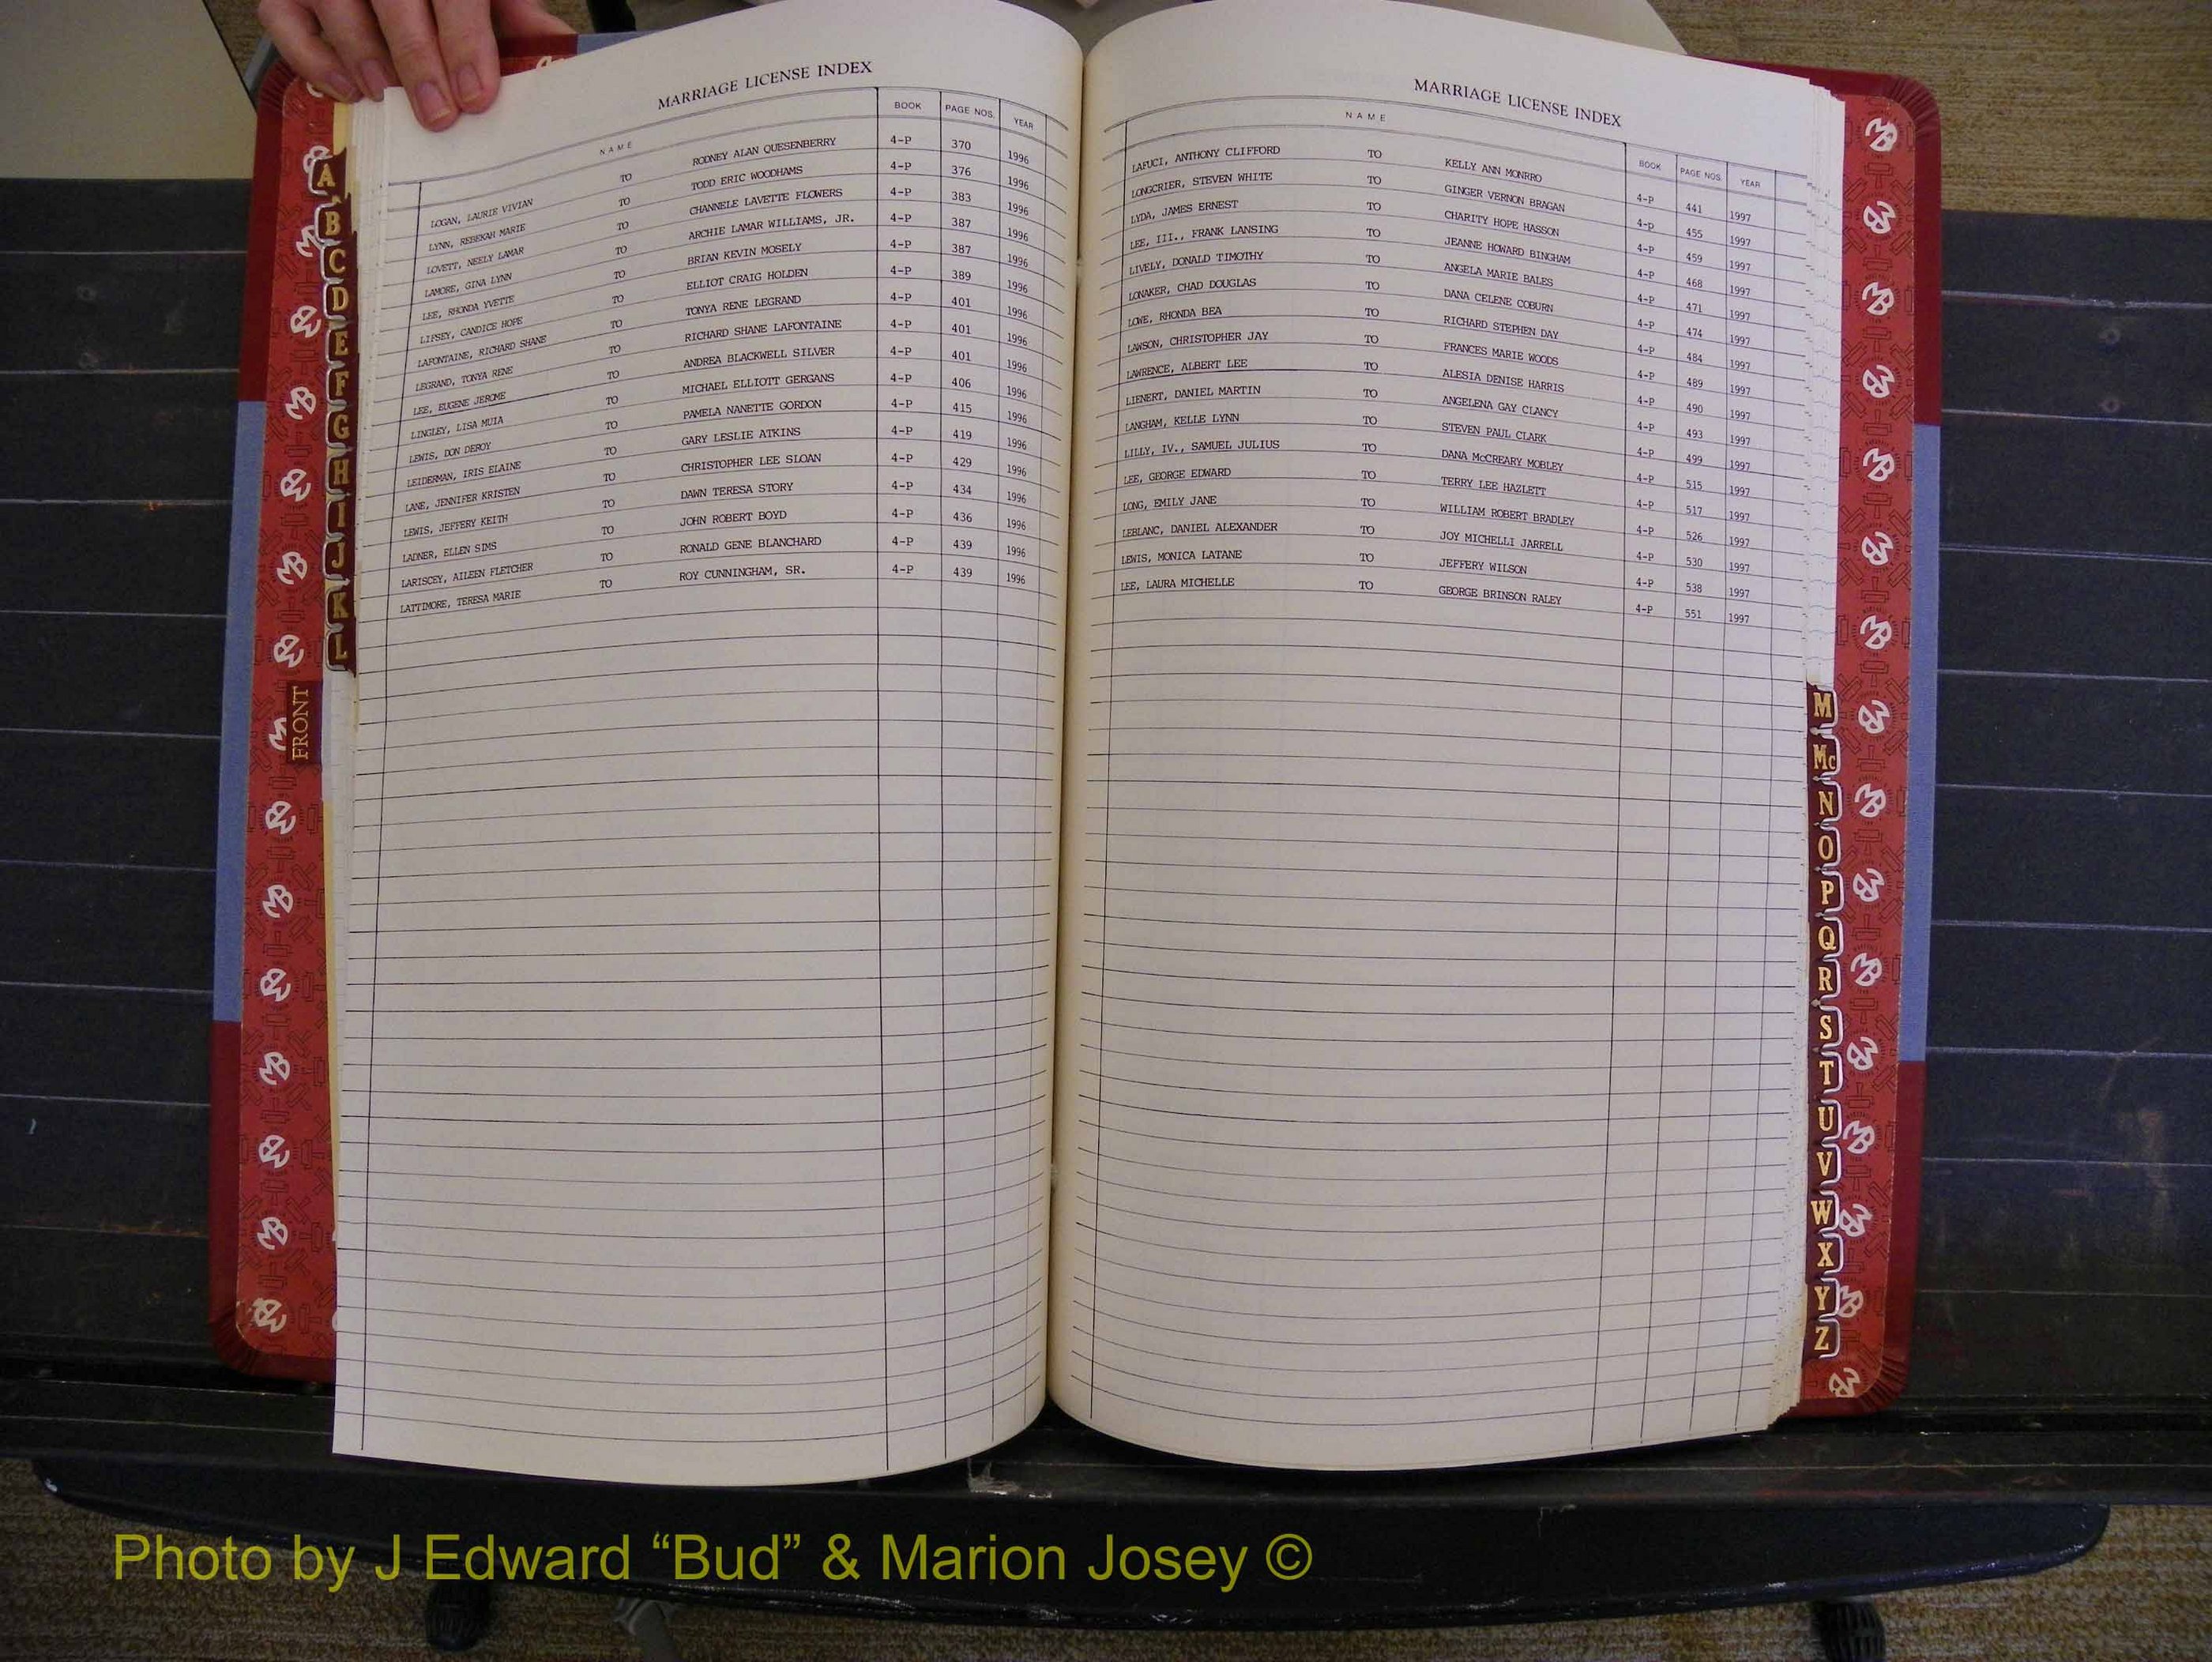 MARRIAGE LICENSE INDEX
NAME BOOK PAGE NOS. YEAR
LOGAN, LAURIE VIVIAN TO RODNEY ALAN QUESENBERRY 4-P 370 1996
LYNN, REBEKAH MARIE TO TODD ERIC WOODHAMS 4-P 376 1996
LOVETT, NEELY LAMAR TO CHANNELE LAVETTE FLOWERS 4-P 383 1996
LAMORE, GINA LYNN TO ARCHIE LAMAR WILLIAMS, JR. 4-P 387 1996
LEE, RHONDA YVETTE TO BRIAN KEVIN MOSELY 4-P 387 1996
LIPSEY, CANDICE HOPE TO ELLIOT CRAIG HOLDEN 4-P 389 1996
LAFONTAINE, RICHARD SHANE TO TONYA RENE LEGRAND 4-P 401 1996
LEGRAND, TONYA RENE TO RICHARD SHANE LAFONTAINE 4-P 401 1996
LEE, EUGENE JEROME TO ANDREA BLACKWELL SILVER 4-P 401 1996
LINGLEY, LISA MUIA TO MICHAEL ELLIOTT GERGANS 4-P 406 1996
LEWIS, DON DEROY TO PAMELA NANETTE GORDON 4-P 415 1996
LEIDERMAN, IRIS ELAINE TO GARY LESLIE ATKINS 4-P 419 1996
LANE, JENNIFER KRISTEN TO CHRISTOPHER LEE SLOAN 4-P 429 1996
LEWIS, JEFFERY KEITH TO DAWN TERESA STORY 4-P 434 1996
LADNER, ELLEN SIMS TO JOHN ROBERT BOYD 4-P 436 1996
LARISCEY, AILEEN FLETCHER TO RONALD GENE BLANCHARD 4-P 439 1996
LATTIMORE, TERESA MARIE TO ROY CUNNINGHAM, SR. 4-P 439 1996
A
B
C
D
E
F
G
H
I
J
K
L
FRONT
MARRIAGE LICENSE INDEX
NAME BOOK PAGE NOS. YEAR
LAFUCI, ANTHONY CLIFFORD TO KELLY ANN MONRRO 4-P 441 1997
LONGCRIER, STEVEN WHITE TO GINGER VERNON BRAGAN 4-p 455 1997
LYDA, JAMES ERNEST TO CHARITY HOPE HASSON 4-P 459 1997
LEE, III., FRANK LANSING TO JEANNE HOWARD BINGHAM 4-P 468 1997
LIVELY, DONALD TIMOTHY TO ANGELA MARIE BALES 4-P 471 1997
LONAKER, CHAD DOUGLAS TO DANA CELENE COBURN 4-P 474 1997
LOWE, RHONDA BEA TO RICHARD STEPHEN DAY 4-P 484 1997
LAWSON, CHRISTOPHER JAY TO FRANCES MARIE WOODS 4-P 489 1997
LAWRENCE, ALBERT LEE TO ALESIA DENISE HARRIS 4-P 490 1997
LIENERT, DANIEL MARTIN TO ANGELENA GAY CLANCY 4-P 493 1997
LANGHAM, KELLE LYNN TO STEVEN PAUL CLARK 4-P 499 1997
LILLY, IV., SAMUEL JULIUS TO DANA McCREARY MOBLEY 4-P 515 1997
LEE, GEORGE EDWARD TO TERRY LEE HAZLETT 4-P 517 1997
LONG, EMILY JANE TO WILLIAM ROBERT BRADLEY 4-P 526 1997
LEBLANC, DANIEL ALEXANDER TO JOY MICHELLI JARRELL 4-P 530 1997
LEWIS, MONICA LATANE TO JEFFERY WILSON 4-P 538 1997
LEE, LAURA MICHELLE TO GEORGE BRINSON RALEY 4-P 551 1997
M
Mc
N
O
P
Q
R
S
T
U
V
W
X
Y
Z
Photo by J Edward “Bud” & Marion Josey ©